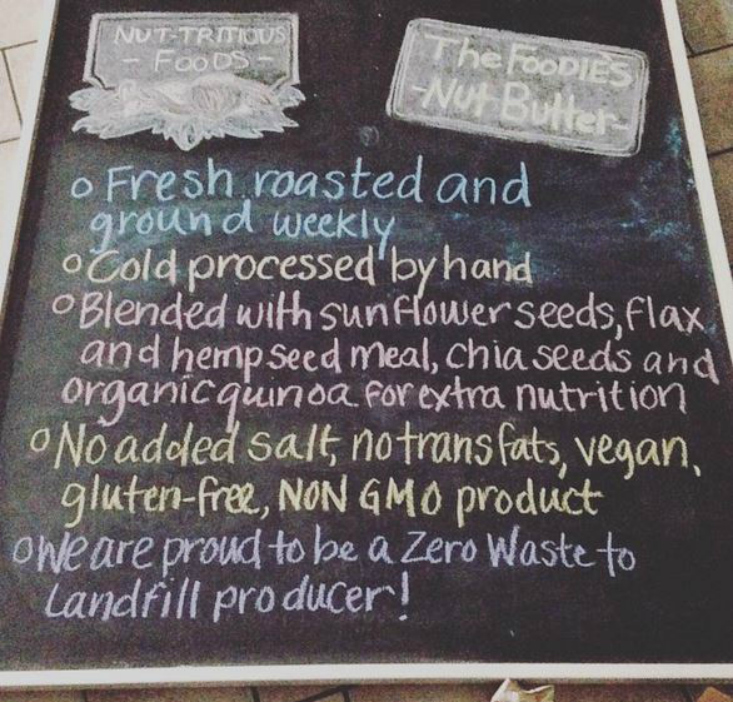 NUT-TRITIOUS
- FOODS -
The FOODIES
-Nut Butter-
o Fresh roasted and
ground weekly
o Cold processed by hand
o Blended with sunflower seeds, flax
and hemp seed meal, chia seeds and
organic quinoa for extra nutrition
o No added salt, no trans fats, vegan,
gluten-free, NON GMO product
o We are proud to be a Zero Waste to
Landfill producer!